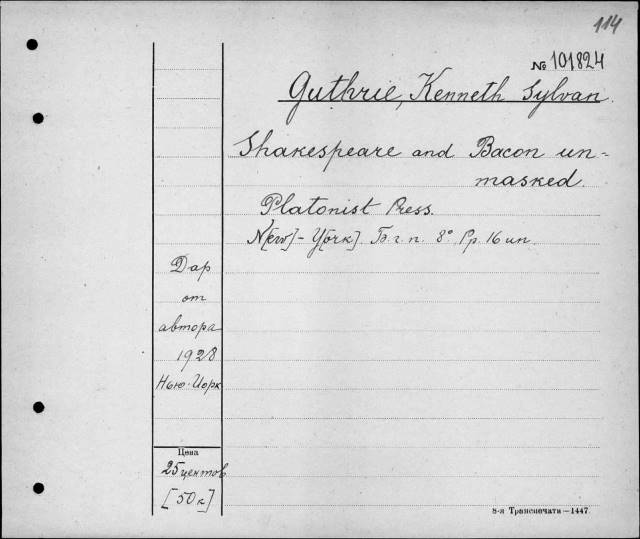 114
№ 101824
Guthrie, Kenneth Sylvan.
Shakespeare and Bacon un-
masked.
Platonist Press.
N[ew]-Y[ork]. Б. г. п. 8° Pp. 16 un.
Дар
от
автора
1928
Нью-Иорк
Цена
25 центов
[50 к]
8-я Транспечати—1447.